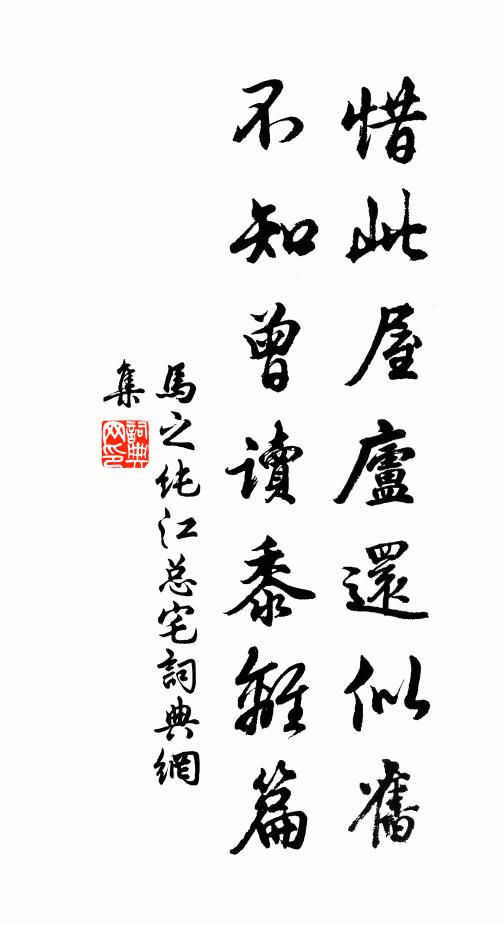 惜此屋廬還似舊
不知曾讀黍離篇
馬之純江总宅詞典網
集
詞典
网印